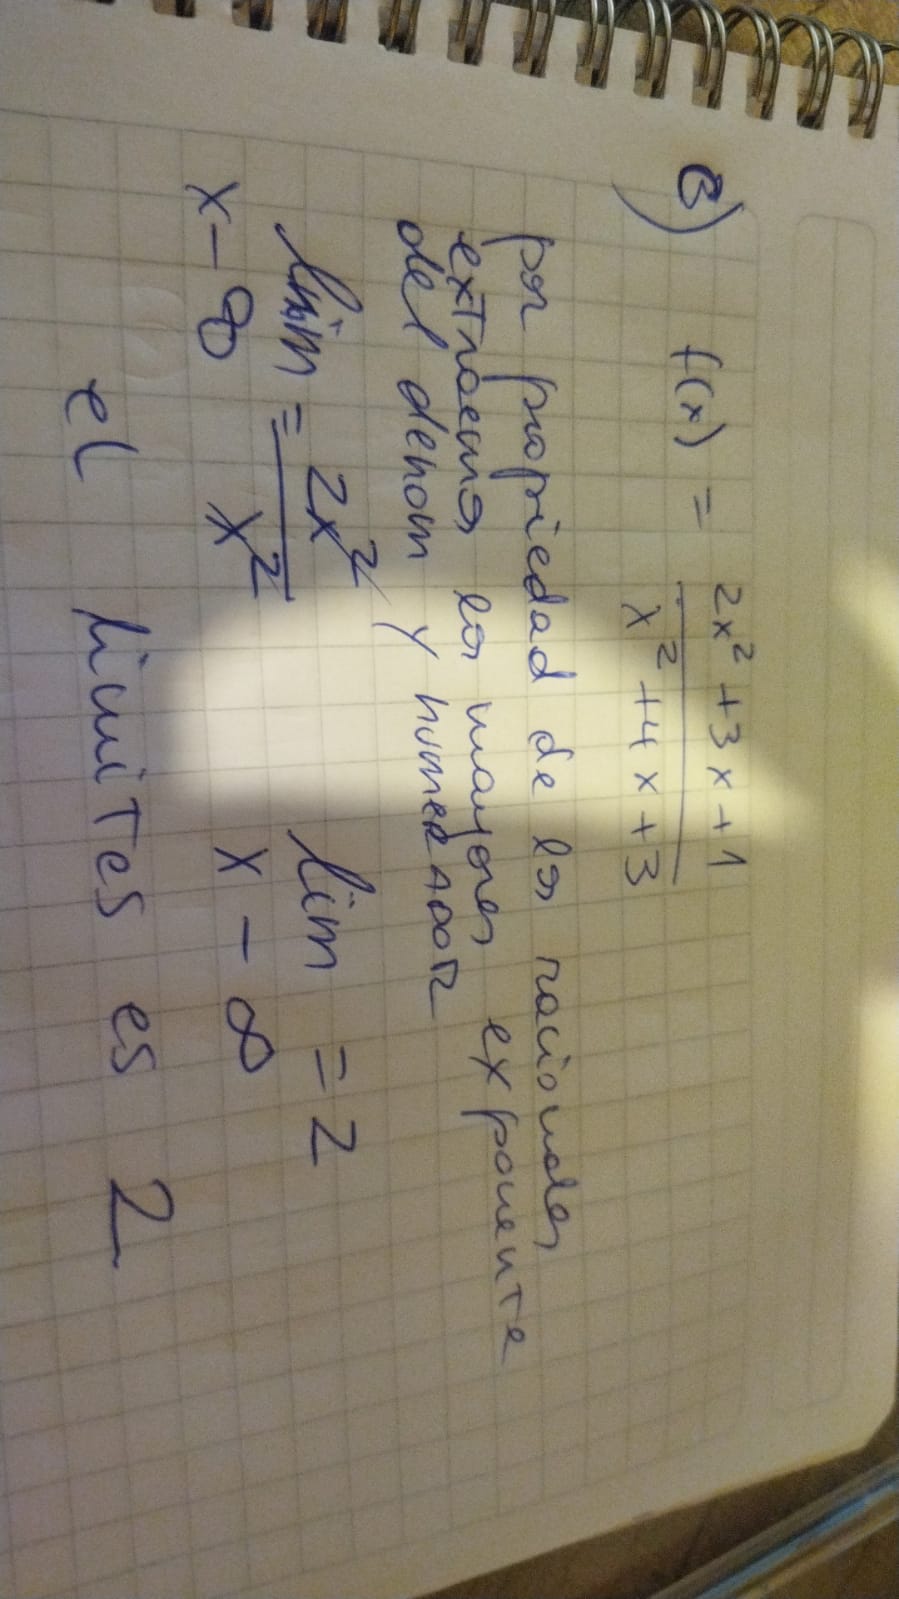 B) f(x) = 2x² + 3x + 1
x² + 4x + 3
por propiedad de los racionales
extraemos los mayores exponente
del denom y numerador
lim = 2x² lim = 2
x - ∞ x² x - ∞
el limites es 2